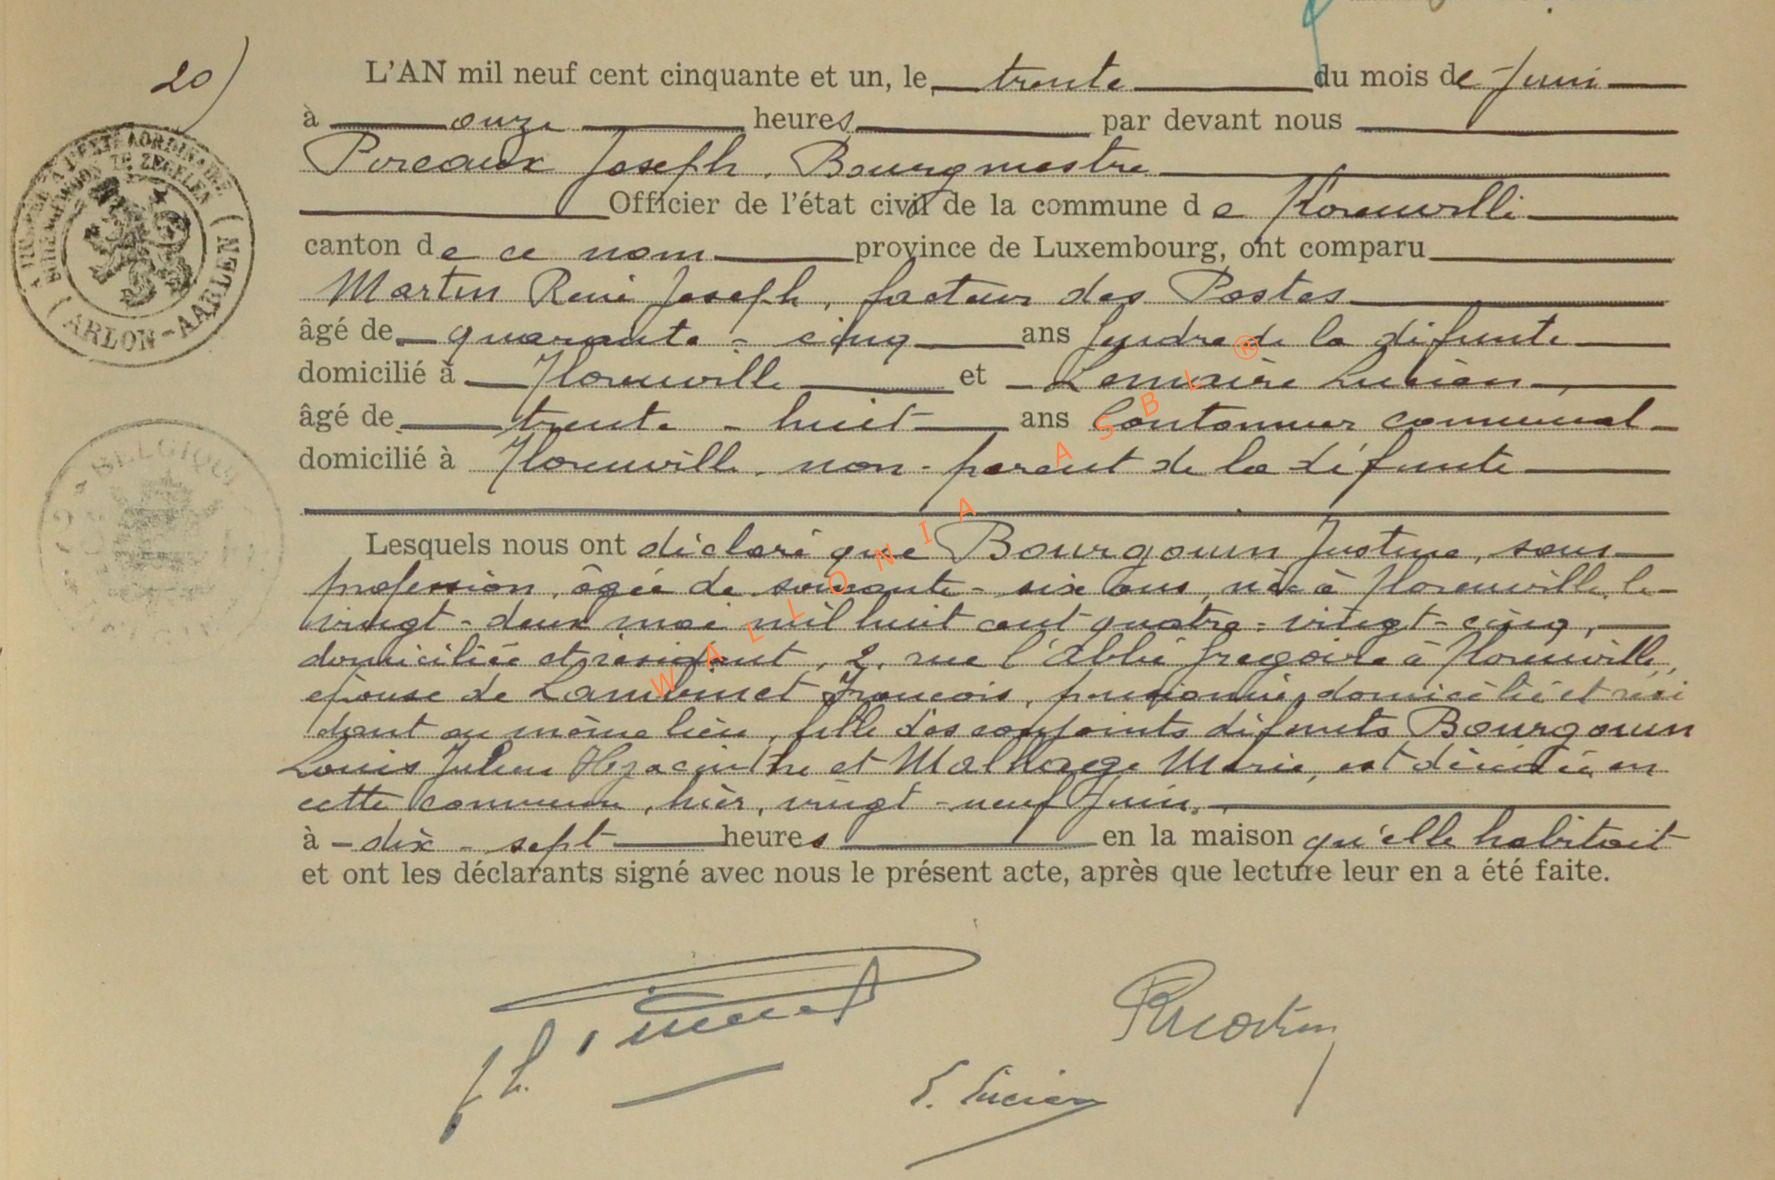 20)
L'AN mil neuf cent cinquante et un, le trente du mois de Juin
à onze heures par devant nous
Porcaux Joseph, Bourgmestre
Officier de l'état civil de la commune de Florenville
canton de ce nom province de Luxembourg, ont comparu
Martin René Joseph, facteur des Postes
âgé de quarante-cinq ans gendre de la défunte
domicilié à Florenville et Lemaire Lucien
âgé de trente-huit ans Cantonnier communal
domicilié à Florenville, non-parent de la défunte
Lesquels nous ont déclaré que Bourgouin Justine, sans
profession, âgée de soixante-six ans, née à Florenville, le
vingt-deux mai mil huit cent quatre-vingt-cinq,
domiciliée et résidant, 2, rue l'Abbé Gregoire à Florenville,
épouse de Lambinet François, pensionné, domicilié et rési
dant au même lieu, fille des conjoints défunts Bourgouin
Louis Julien Hyacinthe et Malhage Marie, est décédée en
cette commune, hier, vingt-neuf Juin,
à dix-sept heures en la maison qu'elle habitait
et ont les déclarants signé avec nous le présent acte, après que lecture leur en a été faite.
RMartin
L. Lucien
ARLON-AARLEN
BELGIQUE
WALLONIA ASBL ®